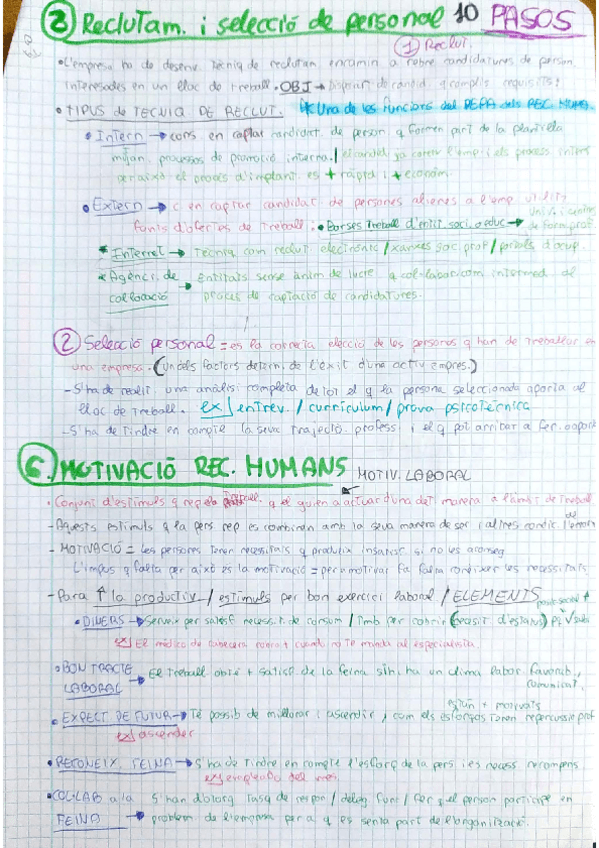 ② Reclutam. i selecció de personal 10 PASOS
① Reclut.
• L'empresa ha de desenv. tècniq de reclutam encamin a rebre candidatures de person.
interesades en un lloc de treball. OBJ → Disposar de candid. q complis requisits!
• TIPUS de TECNIQ DE RECLUT. * Una de les funcions del DEPA dels REC. HUMA.
• Intern → cons. en captar candidat. de person q formen part de la plantilla
mitjan. processos de promoció interna. / el candid ja coneix l'emp i els process intens
per això el procés d'implant. es + ràpid i + econòm.
• Extern → c en captar candidat. de persones alienes a l'emp utilitz
fonts d'ofertes de treball: • Borses Treball d'entit. soci. o educ → Univ. i centre
de form. prof.
* Internet → Tècniq com reclut electrònic / xarxes soc. prof / portals d'ocup.
* Agènci. de Entitats sense ànim de lucre q col·labor. com intermed. del
col·locació → procés de captació de candidatures.
② Selecció personal = es la correcta elecció de les persones q han de treballar en
una empresa. (un dels factors determ. de l'èxit d'una activ empres.)
- S'ha de realit. una anàlisi completa de tot el q la persona seleccionada aporta al
lloc de treball. ex] entrev. / currículum / prova psicotècnica
- S'ha de tindre en compte la seva trajectò. profess. i el q pot arribar a fer.
6. MOTIVACIÓ REC. HUMANS MOTIV. LABORAL
• Conjunt d'estímuls q rep el treball. q el guien a actuar d'una det manera a l'àmbit de Treball
- Aquests estímuls q la pers rep es combinen amb la seva manera de ser i altres condic. de l'entorn
- MOTIVACIÓ = Les persones tenen necessitats q produix insatisf. si no les aconseg.
L'impuls q falta per això es la motivació = per a motivar fa falta conèixer les necessitats
- Para ↑ la productiv / estímuls per bon exercici laboral / ELEMENTS
• DINERS → Serveix per satisf necessit. de consum / Tmb per cobrir
ex] El médico de cabecera cobra + cuando no te manda al especialista.
• BON TRACTE El treball obté + satisf de la feina si hi ha un clima labor. favorab,
LABORAL → comunicat.
• EXPECT DE FUTUR → Té possib de millorar i ascendir, com els esforços tenen repercussió prof
estàn + motivats
ex] ascender
• RECONEIX. FEINA → S'ha de tindre en compte l'esforç de la pers i es necess recompens
ex] empleado del mes.
• COL·LAB a la S'han d'otorg tasq de respon / deleg func / fer q el person particip en
FEINA → problem de l'empresa per a q es senta part de l'organització.